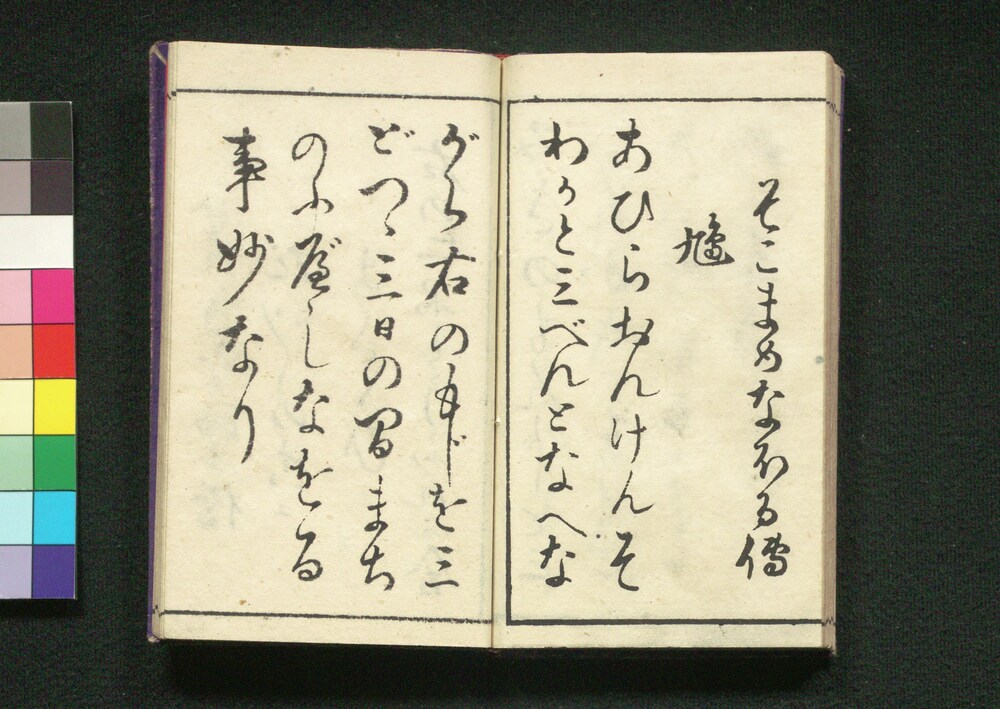 そこまめなほる傳
あひらおんけんそ
わかと三べんとなへな
がら右のもじを三
どつゝ三日の間まち
のふべしなをる
事妙なり